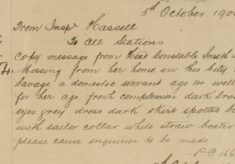 5th October 190
From Inspr Hassell
To All Stations
Copy message from Head Constable Smith
Missing from her home in this City
Savage a domestic servant age
for her age fresh complexion dark bro
eyes grey dress dark skirt spotted b
with sailor collar white straw boater
please cause enquiries to be made
P.C. 166